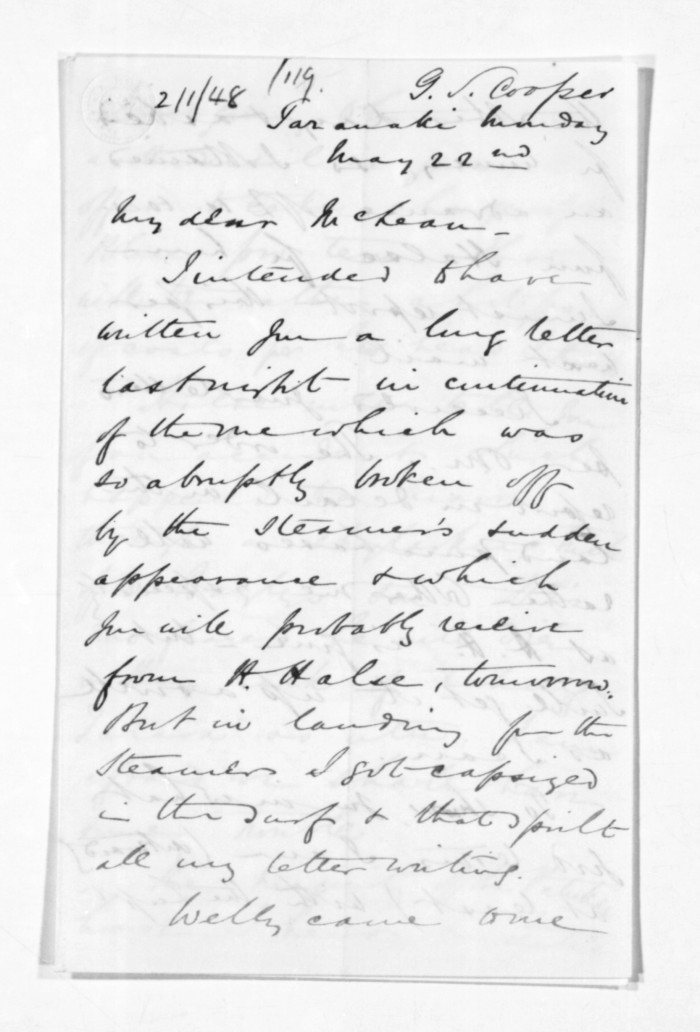 2/1/48 /119. G. S. Cooper
Taranaki Monday
May 22nd
My dear McLean -
I intended to have
written you a long letter
last night in continuation
of the one which was
so abruptly broken off
by the steamer's sudden
appearance & which
you will probably receive
from H. Halse, tomorrow.
But in landing from the
steamers I got capsized
in the surf & that spoilt
all my letter writing.
Welby came to me